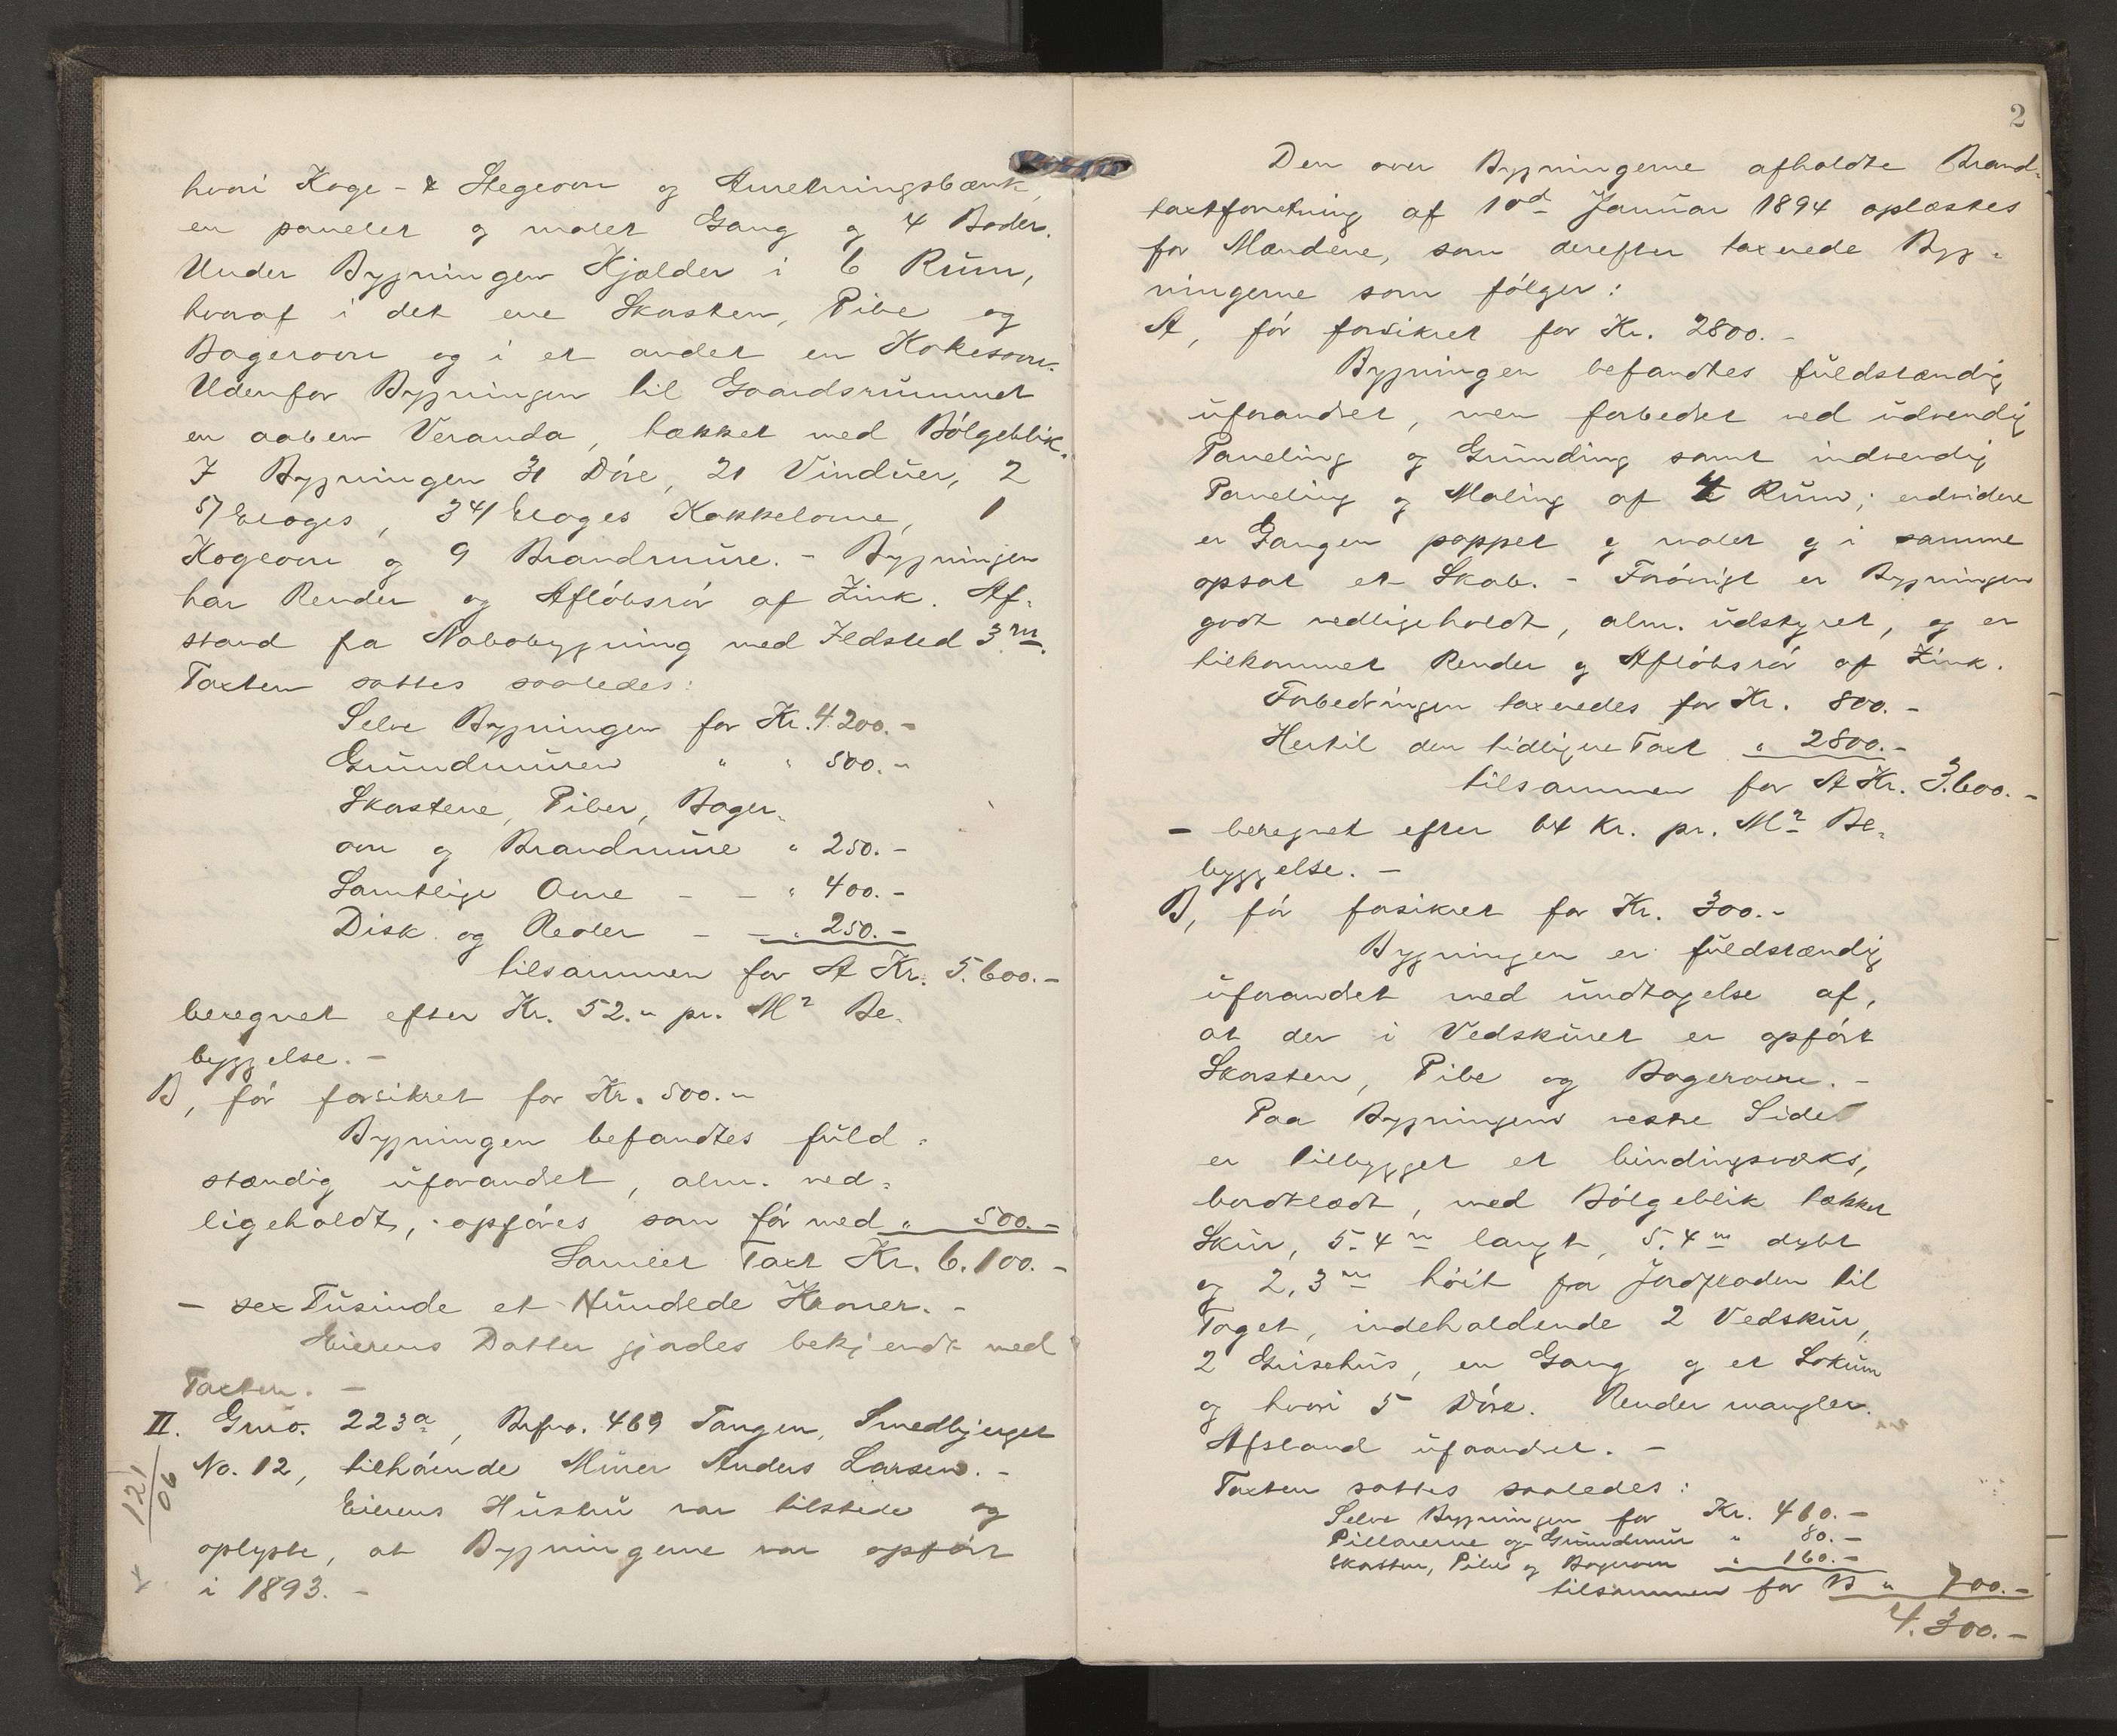 hvori Koge- & Stegeovn og Anretningsbænk,
en panelet og malet Gang og 4 Boder.
Under Bygningen Kjælder i 6 Rum,
hvoraf i det ene Skorsten, Pibe og
Bagerovn og i et andet en Kokesovn.
Udenfor Bygningen til Gaardsrummet
en aaben Veranda, tækket med Bølgeblik.
I Bygningen 31 Døre, 21 Vinduer, 2
5/ Etages, 3 4/ Etages Kakkelovne, 1
Kogeovn og 9 Brandmure. - Bygningen
har Render og Afløbsrør af Zink. Af-
stand fra Nabobygning med Ildsted 3 m.
Taxten sattes saaledes:
Selve Bygningen for Kr. 4.200.-
Grundmuren " " 500.-
Skorstene, Piber, Bager-
ovn og Brandmure " 250.-
Samtlige Ovne - - " 400.-
Disk og Reoler - - " 250.-
tilsammen for A Kr. 5.600.-
beregnet efter Kr. 52.- pr. M² Be-
byggelse. -
B, før forsikret for Kr. 500.-
Bygningen befandtes fuld-
stændig uforandret, alm. ved-
ligeholdt, opføres som før med " 500.-
Samlet Taxt Kr. 6.100.-
- sex Tusinde et Hundrede Kroner. -
Eierens Datter gjordes bekjendt med
Taxten. -
II. Gno. 223a, Brfno. 469 Tangen, Smedbjerget
No. 12, tilhørende Murer Anders Larsen. -
121/06
Eierens Hustru var tilstede og
oplyste, at Bygningerne var opført
i 1893. -
2
Den over Bygningerne afholdte Brand-
taxtforretning af 10d Januar 1894 oplæstes
for Mændene, som derefter taxerede Byg-
ningerne som følger:
A, før forsikret for Kr. 2800. -
Bygningen befandtes fuldstændig
uforandret, men forbedret ved udvendig
Paneling og Grunding samt indvendig
Paneling og Maling af 4 Rum; endvidere
er Gangen pappet og malet og i samme
opsat et Skab. - Forøvrigt er Bygningen
godt vedligeholdt, alm. udstyret, og er
tilkommet Render og Afløbsrør af Zink.
Forbedringen taxeredes for Kr. 800. -
Hertil den tidligere Taxt " 2800.-
tilsammen for A Kr. 3.600. -
- beregnet efter 64 Kr. pr. M² Be-
byggelse. -
B, før forsikret for Kr. 300.-
Bygningen er fuldstændig
uforandret med undtagelse af,
at der i Vedskuret er opført
Skorsten, Pibe og Bagerovn. -
Paa Bygningens vestre Side
er tilbygget et bindingsverks,
bordklædt, med Bølgeblik tækket
Skur, 5.4 m langt, 5.4 m dybt
og 2,3 m høit fra Jordfladen til
Taget, indeholdende 2 Vedskur,
2 Grisehus, en Gang og et Lokum
og hvori 5 Døre. Render mangler.
Afstand uforandret. -
Taxten sattes saaledes:
Selve Bygningen for Kr. 460.-
Pillarerne og Grundmur " 80.-
Skorsten, Pibe og Bagerovn " 160.-
tilsammen for B " 700.-
4.300.-